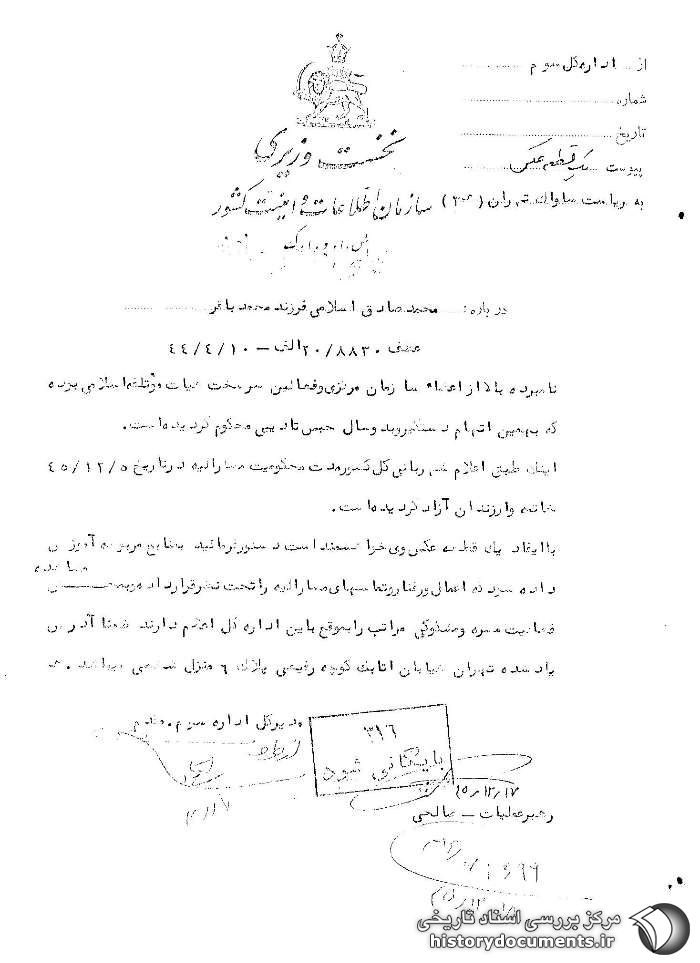 از اداره کل سوم
شماره
تاریخ
پیوست یک قطعه عکس
نخست وزیری
سازمان اطلاعات و امنیت کشور
به ریاست ساواک تهران (۳۰۰)
درباره: محمد صادق اسلامی فرزند محمد باقر
عطف ۲۰/۸۸۳۰ الف – ۴۴/۴/۱۰
نامبرده بالا از اعضاء سازمان مرکزی و فعالین سرسخت هیات موتلفه اسلامی بوده
که بهمین اتهام دستگیر و بدو سال حبس تادیبی محکوم گردیده است.
اینک طبق اعلام شهربانی کل کشور مدت محکومیت مشارالیه در تاریخ ۴۵/۱۲/۵
خاتمه و از زندان آزاد گردیده است.
با ایفاد یک قطعه عکس وی خواهشمند است دستور فرمائید بمنابع مربوطه آموزش
داده شود که اعمال و رفتار و تماسهای مشارالیه را تحت نظر قرار داده و
مشاهده
فعالیت مضره و مشکوکی مراتب را بموقع باین اداره کل اعلام دارند ضمنا آدرس
یاد شده تهران خیابان اتابک کوچه رفیعی پلاک ۶ منزل شخصی میباشد.
مدیر کل اداره سوم. مقدم
۳۱۶
بایگانی شود
۴۵/۱۲/۱۷
رهبر عملیات – صالحی
مرکز بررسی اسناد تاریخی
historydocuments.ir